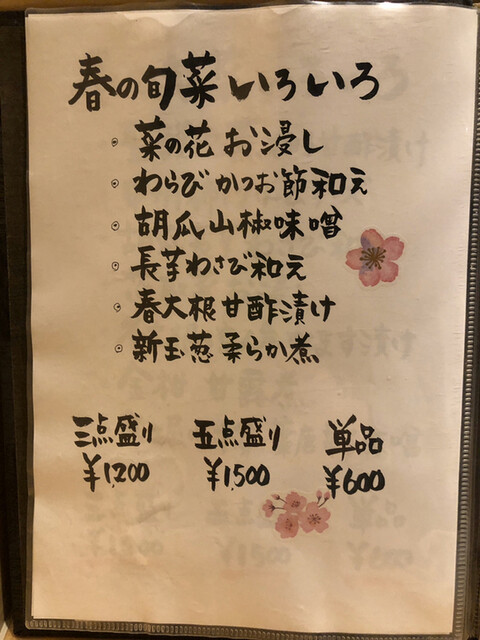 春の旬菜いろいろ
菜の花お浸し
わらびかつお節和え
胡瓜山椒味噌
長芋わさび和え
春大根甘酢漬け
新玉葱柔らか煮
三点盛り 五点盛り 単品
¥1,200 ¥1,500 ¥600